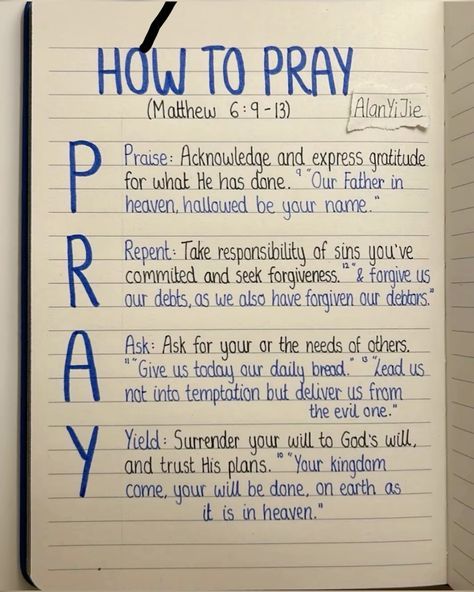 HOW TO PRAY
(Matthew 6:9-13)
AlanYiJie
P
Praise: Acknowledge and express gratitude
for what He has done. 9 "Our Father in
heaven, hallowed be your name."
R
Repent: Take responsibility of sins you've
commited and seek forgiveness. 12 "& forgive us
our debts, as we also have forgiven our debtors."
A
Ask: Ask for your or the needs of others.
11 "Give us today our daily bread." 13 "Lead us
not into temptation but deliver us from
the evil one."
Y
Yield: Surrender your will to God's will,
and trust His plans. 10 "Your kingdom
come, your will be done, on earth as
it is in heaven."